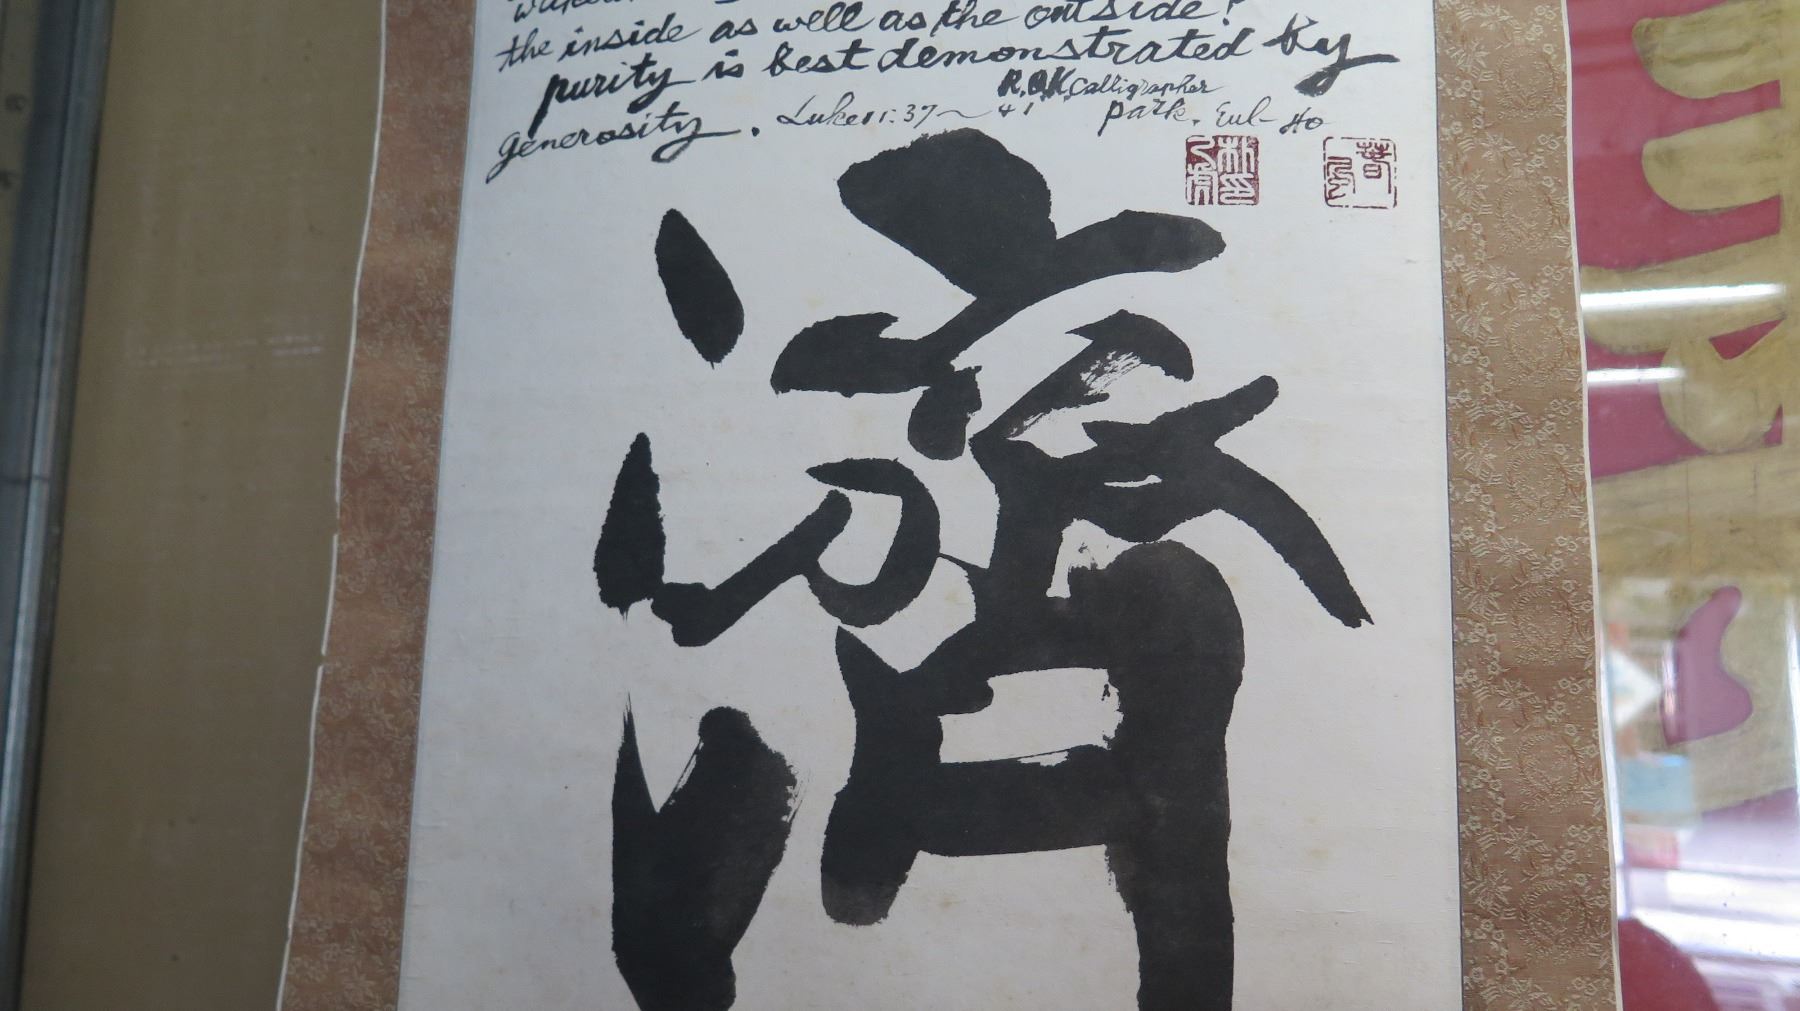 the inside as well as the outside!
purity is best demonstrated by
generosity. Luke 11:37~41
R.O.K. Calligrapher
Park. Eul-Ho
濟